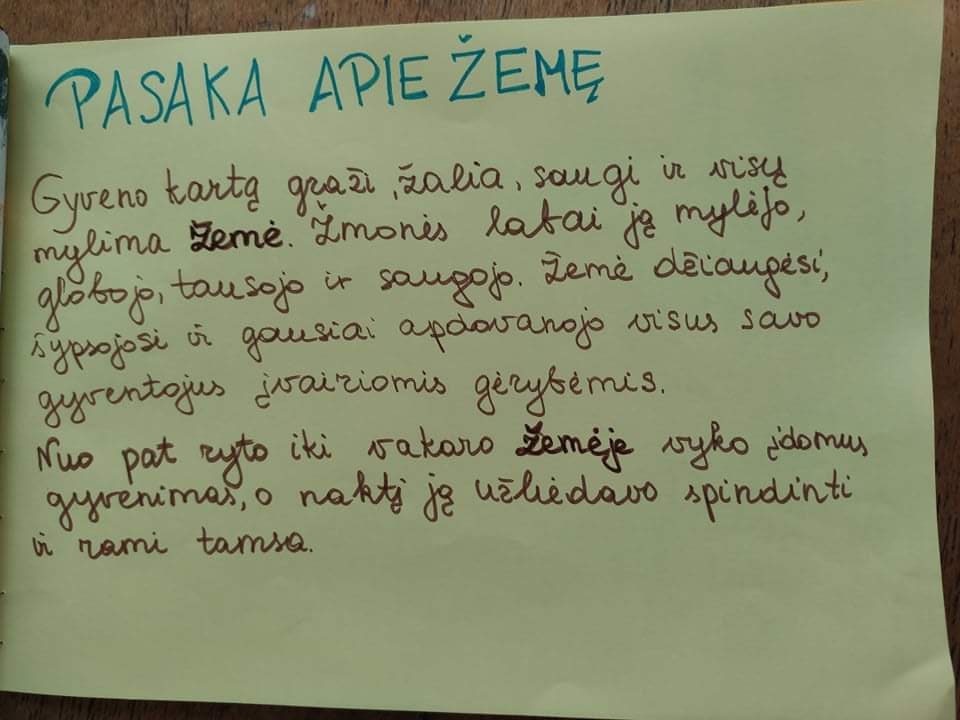 PASAKA APIE ŽEMĘ
Gyveno kartą graži, žalia, saugi ir visų
mylima Žemė. Žmonės labai ją mylėjo,
globojo, tausojo ir saugojo. Žemė džiaugėsi,
šypsojosi ir gausiai apdovanojo visus savo
gyventojus įvairiomis gėrybėmis.
Nuo pat ryto iki vakaro Žemėje vyko įdomus
gyvenimas, o naktį ją užliedavo spindinti
ir rami tamsa.